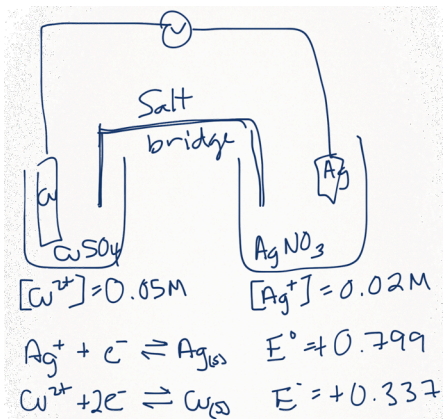 V
Salt
bridge
Cu
Ag
CuSO4
AgNO3
[Cu²⁺]=0.05M
[Ag⁺]=0.02M
Ag⁺ + e⁻ ⇌ Ag(s) E°=+0.799
Cu²⁺+2e⁻ ⇌ Cu(s) E°=+0.337